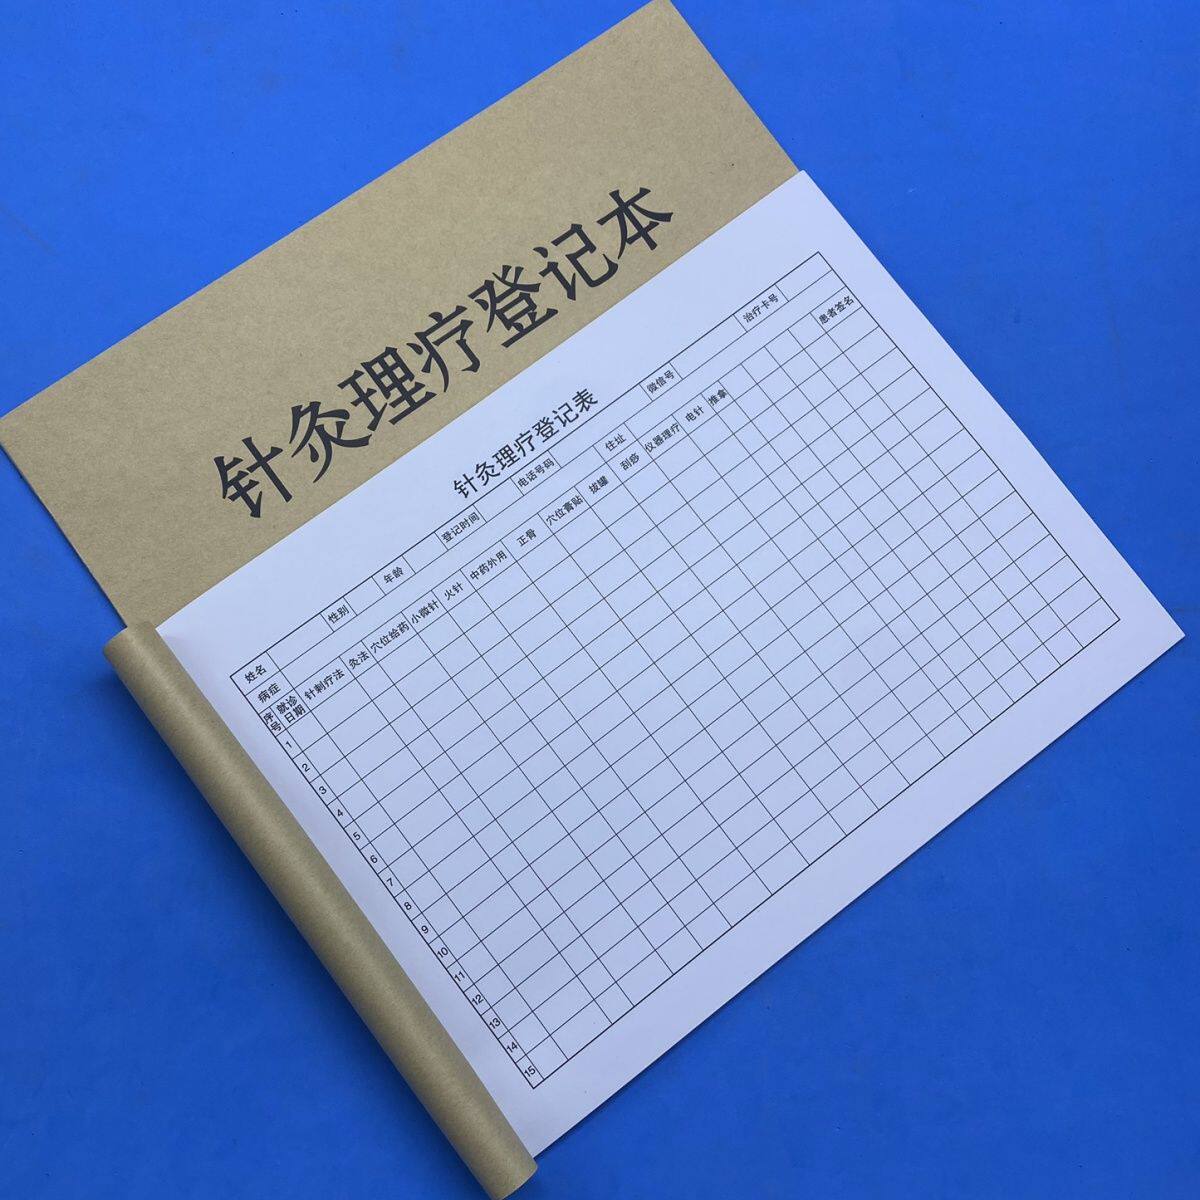 针灸理疗登记本
针灸理疗登记表
姓名 性别 年龄 登记时间 电话号码 住址 微信号 治疗卡号
病症
序号 就诊日期 针刺疗法 灸法 穴位给药 小微针 火针 中药外用 正骨 穴位膏贴 拔罐 刮痧 仪器理疗 电针 推拿 患者签名
1
2
3
4
5
6
7
8
9
10
11
12
13
14
15